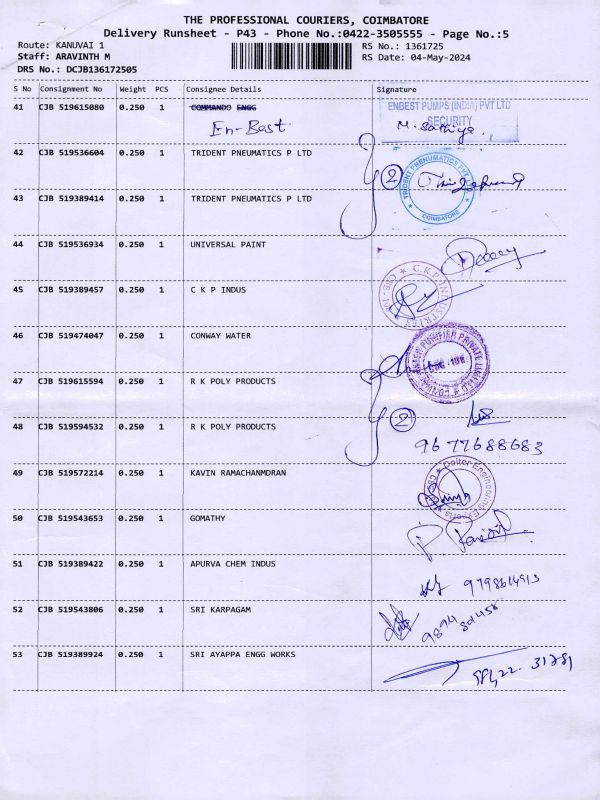 THE PROFESSIONAL COURIERS, COIMBATORE
Delivery Runsheet - P43 - Phone No.:0422-3505555 - Page No.:5
Route: KANUVAI 1
RS No.: 1361725
Staff: ARAVINTH M
RS Date: 04-May-2024
DRS No.: DCJB136172505
S No Consignment No Weight PCS Consignee Details Signature
41 CJB 519615080 0.250 1 COMMANDO ENGG
ENBEST PUMPS (INDIA) PVT LTD
SECURITY
En-Best
M. Sathiya.
42 CJB 519536604 0.250 1 TRIDENT PNEUMATICS P LTD
2
COIMBATORE
43 CJB 519389414 0.250 1 TRIDENT PNEUMATICS P LTD
44 CJB 519536934 0.250 1 UNIVERSAL PAINT
45 CJB 519389457 0.250 1 C K P INDUS
C.K.P. INDUSTRIES
46 CJB 519474047 0.250 1 CONWAY WATER
47 CJB 519615594 0.250 1 R K POLY PRODUCTS
48 CJB 519594532 0.250 1 R K POLY PRODUCTS
2
9677688683
49 CJB 519572214 0.250 1 KAVIN RAMACHANMDRAN
50 CJB 519543653 0.250 1 GOMATHY
51 CJB 519389422 0.250 1 APURVA CHEM INDUS
52 CJB 519543806 0.250 1 SRI KARPAGAM
53 CJB 519389924 0.250 1 SRI AYAPPA ENGG WORKS